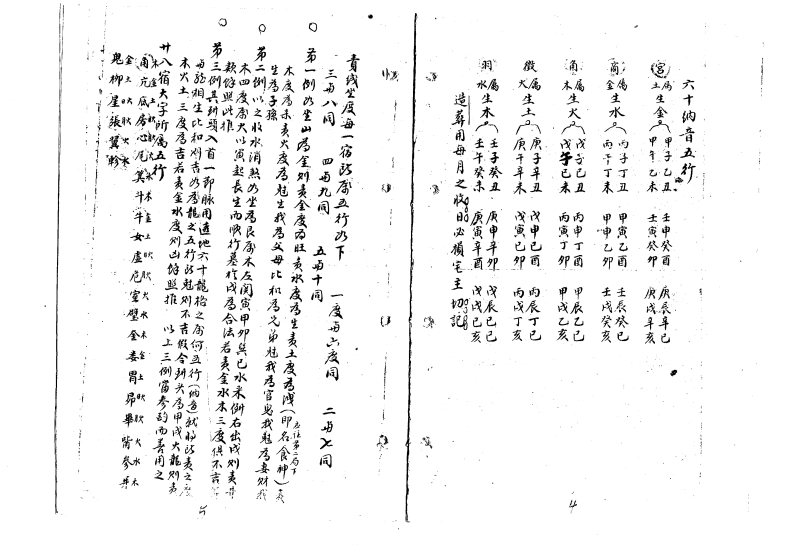 六十納音五行
宮 屬土 生金 甲子乙丑 壬申癸酉 庚辰辛巳
甲午乙未 壬寅癸卯 庚戌辛亥
商 屬金 生水 丙子丁丑 甲申乙酉 壬辰癸巳
丙午丁未 甲寅乙卯 壬戌癸亥
角 屬木 生火 戊子己丑 丙申丁酉 甲辰乙巳
戊午己未 丙寅丁卯 甲戌乙亥
徵 屬火 生土 庚子辛丑 戊申己酉 丙辰丁巳
庚午辛未 戊寅己卯 丙戌丁亥
羽 屬水 生木 壬子癸丑 庚申辛酉 戊辰己巳
壬午癸未 庚寅辛卯 戊戌己亥
造葬用每月之收日必損宅主切記
4
責线坐度每一宿所屬五行如下
一度与六度同 二与七同
三与八同 四与九同 五与十同
第一例如坐山為金则責金度為旺責水度為生責土度為洩(即名食神)責
木度為 責火度為尅生我為父母比和為兄弟尅我為官鬼我尅為妻財我
生為子孫
第二例以之收水消煞如坐為艮屬木左関寅甲卯巽巳水来倒右出戌则責
木四度屬火以寅起長生而順行墓於戌為合法若責金水木三度俱不吉
餘照此推
第三例其到頭入首一節脉用透地六十龍格之屬何五行(納音)我將所責之度
与龍相生比和则吉如為龍之五行所尅则不吉假令到头為甲戌火龍则責
木火土三度為吉若責金水度则凶餘照推 以上三例當参酌而善用之
廿八宿大字所屬五行
角亢底房心尾箕斗牛女虚危室壁奎娄胃昴畢觜参井
鬼柳星張翼軫
5